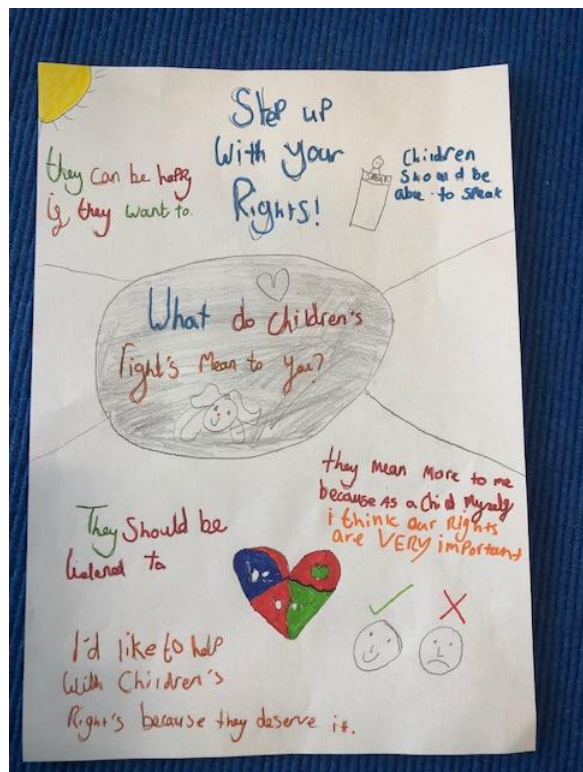 Step up
With your
Rights!
they can be happy
if they want to.
Children
Should be
able to speak
What do children's
right's mean to you?
they mean more to me
because as a child myself
i think our rights
are VERY important
They should be
listend to
I'd like to help
With Children's
Right's because they deserve it.